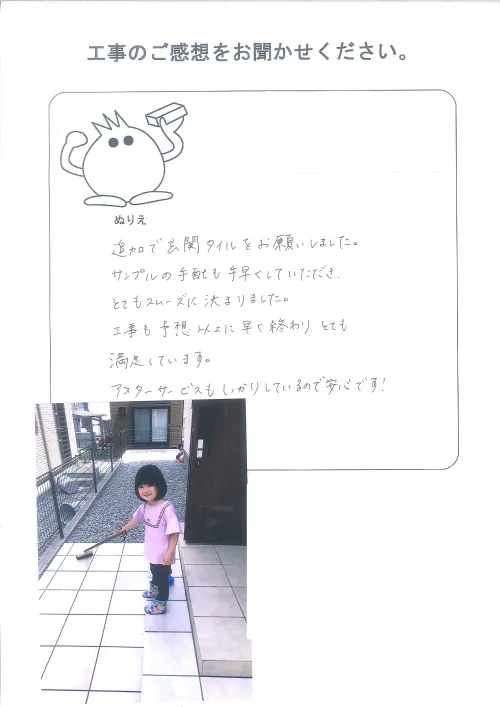 工事のご感想をお聞かせください。
ぬりえ
追加で玄関タイルをお願いしました。
サンプルの手配も手早くしていただき、
とてもスムーズに決まりました。
工事も予想以上に早く終わり、とても
満足しています。
アスターサービスもしっかりしているので安心です!